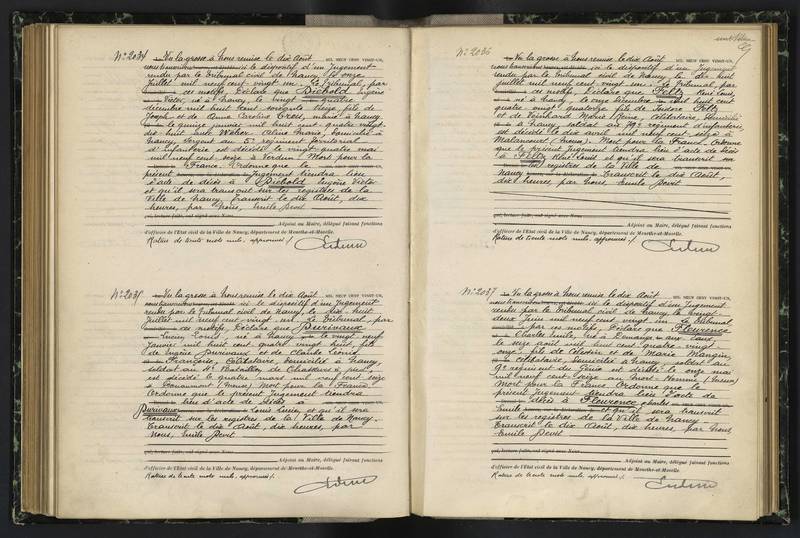 N° 2034 Vu la grosse à Nous remise le dix Août MIL NEUF CENT VINGT-UN,
ici le dispositif d'un Jugement
rendu par le Tribunal civil de Nancy, le onze
Juillet mil neuf cent vingt un. Le Tribunal, par
ces motifs, Déclare que Diebold Eugène
Victor, né à Nancy, le vingt quatre
décembre mil huit cent soixante seize, fils de
Joseph et de Anne Caroline, marié à Nancy
le quinze janvier mil huit cent quatre vingt
dix huit avec Weber Aline Marie, domicilié à
Nancy, Sergent au 5e régiment territorial
d'Infanterie est décédé le vingt quatre mai
mil neuf cent seize à Verdun. Mort pour la
France. Ordonne que le
présent Jugement tiendra lieu
d'acte de décès à Diebold Eugène Victor
et qu'il sera transcrit sur les registres de la
Ville de Nancy. Transcrit le dix Août, dix
heures, par Nous, Emile
Adjoint au Maire, délégué faisant fonctions
d'officier de l'État civil de la Ville de Nancy, département de Meurthe-et-Moselle.
Rature de trente mots nuls, approuvée /.
N° 2035 Vu la grosse à Nous remise le dix Août MIL NEUF CENT VINGT-UN,
ici le dispositif d'un Jugement
rendu par le Tribunal civil de Nancy, le dix huit
Juillet mil neuf cent vingt un. Le Tribunal, par
ces motifs, Déclare que Durivaux
Lucien Louis, né à Nancy le vingt neuf
Janvier mil huit cent quatre vingt huit, fils
de Eugène Durivaux et de Claude Léonie
Françoise, célibataire, domicilié à Nancy
soldat au 4e Bataillon de Chasseurs à pied,
est décédé le quatre mars mil neuf cent seize
à Douaumont (Meuse) Mort pour la France
Ordonne que le présent Jugement tiendra
lieu d'acte de décès à
Durivaux Louis Lucien, et qu'il sera
transcrit sur les registres de la Ville de Nancy.
Transcrit le dix Août, dix heures, par
Nous, Emile
Adjoint au Maire, délégué faisant fonctions
d'officier de l'État civil de la Ville de Nancy, département de Meurthe-et-Moselle.
Rature de trente mots nuls, approuvée /.
N° 2036 Vu la grosse à Nous remise le dix Août MIL NEUF CENT VINGT-UN,
ici le dispositif d'un Jugement
rendu par le Tribunal civil de Nancy le dix huit
juillet mil neuf cent vingt un. Le Tribunal, par
ces motifs, Déclare que Feltz René Louis
né à Nancy le onze Décembre mil huit cent
quatre vingt quatorze, fils de Isidore Feltz
et de Reinhard Marie Reine, célibataire, domicilié
à Nancy, soldat au 79e régiment d'infanterie,
est décédé le dix avril mil neuf cent seize à
Malancourt (Meuse). Mort pour la France. Ordonne
que le présent Jugement tiendra lieu d'acte de décès
à Feltz René Louis et qu'il sera transcrit sur
les registres de la Ville de
Nancy Transcrit le dix Août,
dix heures, par Nous, Emile
Adjoint au Maire, délégué faisant fonctions
d'officier de l'État civil de la Ville de Nancy, département de Meurthe-et-Moselle.
Rature de trente mots nuls, approuvée /.
N° 2037 Vu la grosse à Nous remise le dix Août MIL NEUF CENT VINGT-UN,
ici le dispositif d'un Jugement
rendu par le Tribunal civil de Nancy le vingt
deux Juin mil neuf cent vingt un. Le Tribunal
par ces motifs, Déclare que Fleurence
Charles Emile, né à Romange aux Eaux
le seize août mil huit cent quatre vingt
onze, fils de Célestin et de Marie Mangin,
célibataire, domicilié à Nancy, soldat au
9e régiment du Génie est décédé le onze mai
mil neuf cent seize au Mort Homme (Meuse)
Mort pour la France. Ordonne que le
présent Jugement tiendra lieu d'acte de
décès à Fleurence Charles
Emile et qu'il sera transcrit
sur les registres de la Ville de Nancy.
Transcrit le dix Août, dix heures, par Nous
Emile
Adjoint au Maire, délégué faisant fonctions
d'officier de l'État civil de la Ville de Nancy, département de Meurthe-et-Moselle.
Rature de trente mots nuls, approuvée /.